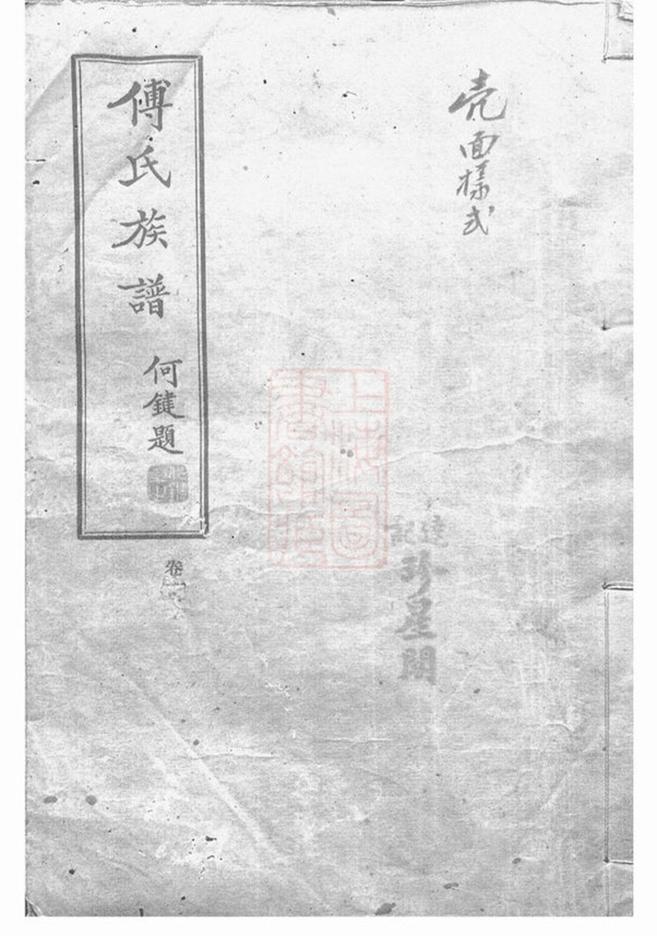 壳面樣式
傅氏族譜
何鍵題
卷
上海圖書館藏
達記
珍星閣